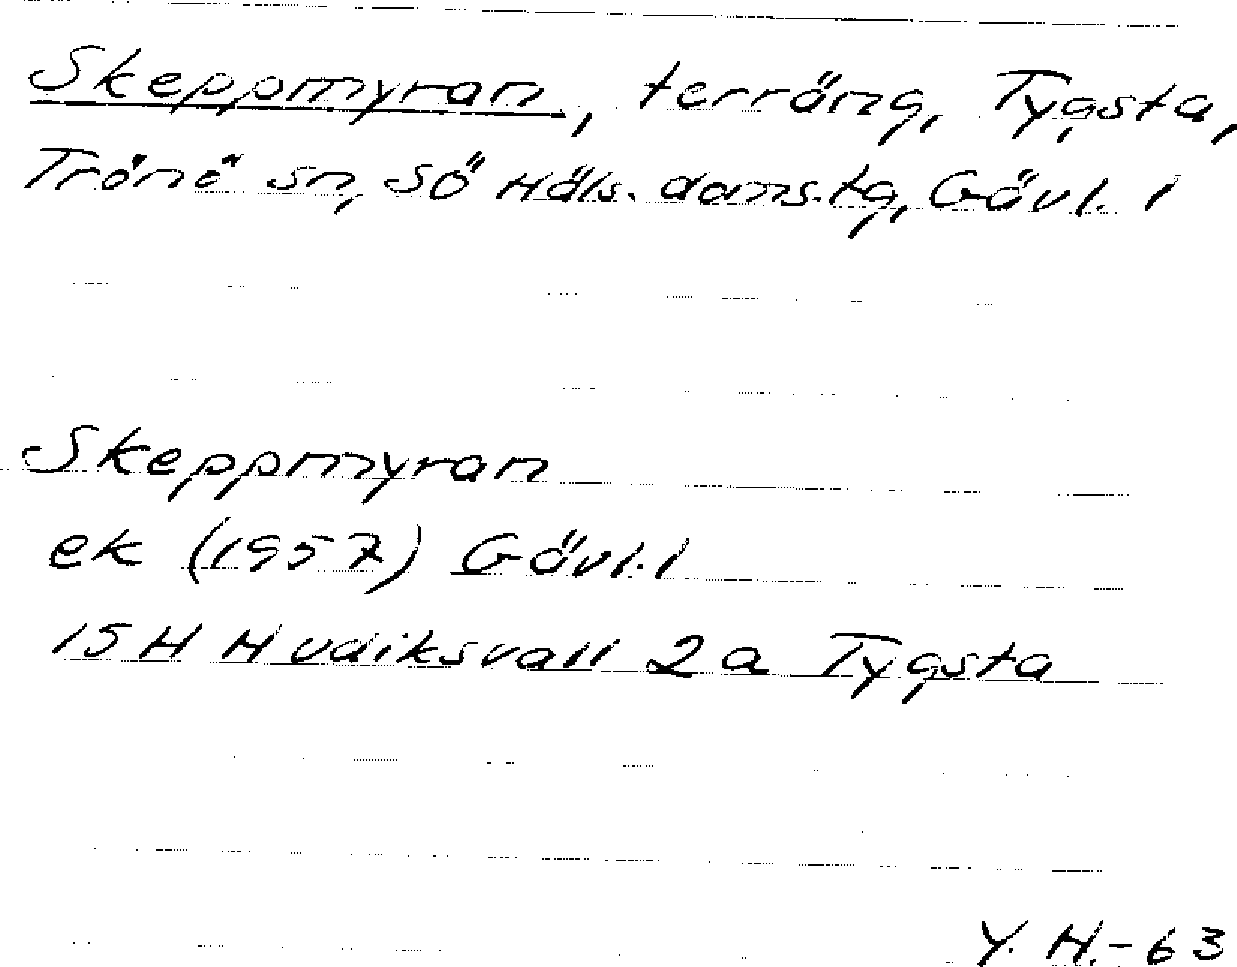 Skeppmyran, terräng, Tygsta,
Trönö sn, Sö Häls. doms.tg, Gävl. l
Skeppmyran
ek (1957) Gävl. l
15H Hudiksvall 2a Tygsta
Y. H. -63